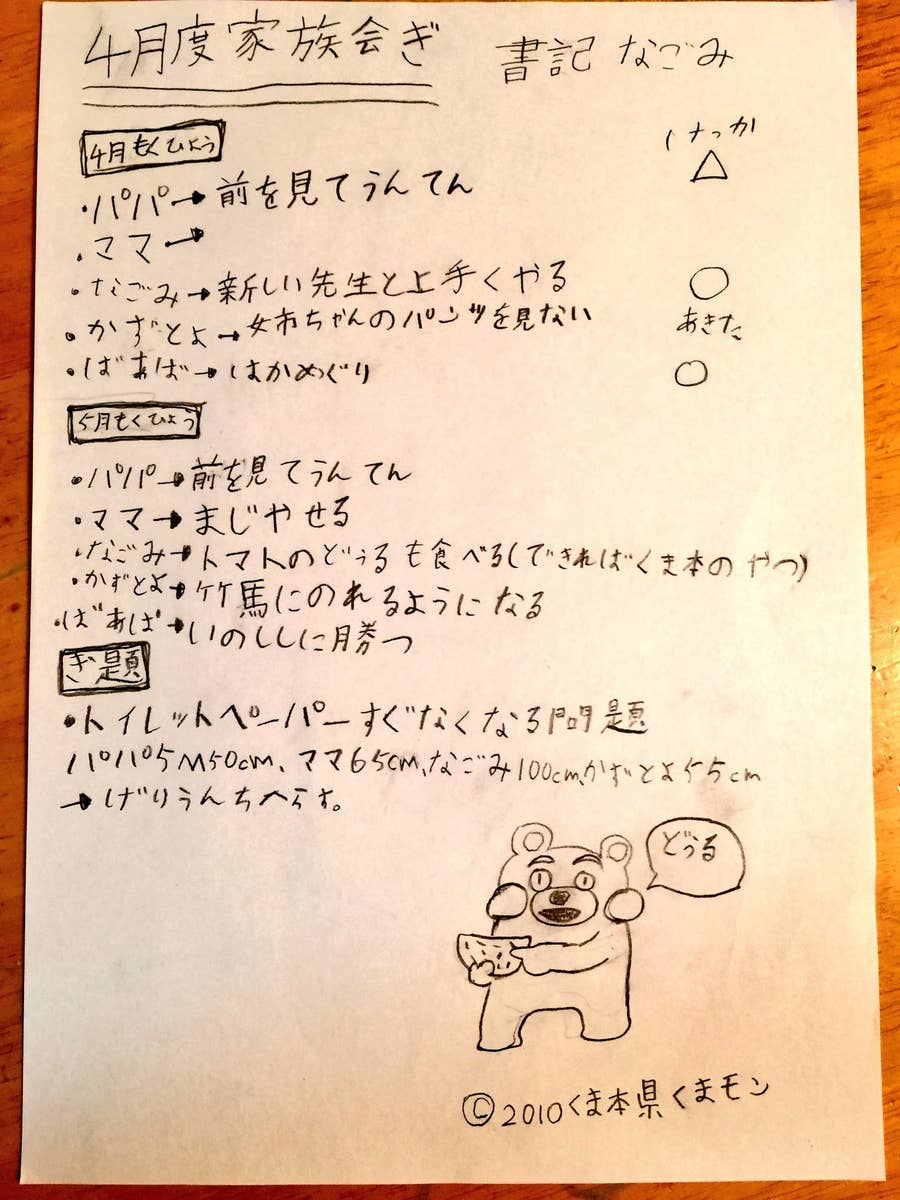 4月度家族会ぎ 書記 なごみ
4月もくひょう けっか
・パパ→前を見てうんてん △
・ママ→
・なごみ→新しい先生と上手くやる ○
・かずとよ→女市ちゃんのパンツを見ない あきた
・ばあば→はかめぐり ○
5月もくひょう
・パパ→前を見てうんてん
・ママ→まじやせる
・なごみ→トマトのどぅるも食べる(できればくま本のやつ)
・かずとよ→竹馬にのれるようになる
・ばあば→いのししに勝つ
ぎ題
・トイレットペーパーすぐなくなる問題
パパ5M50cm、ママ65cm、なごみ100cm、かずとよ55cm
→げりうんちへらす。
どぅる
©2010くま本県くまモン